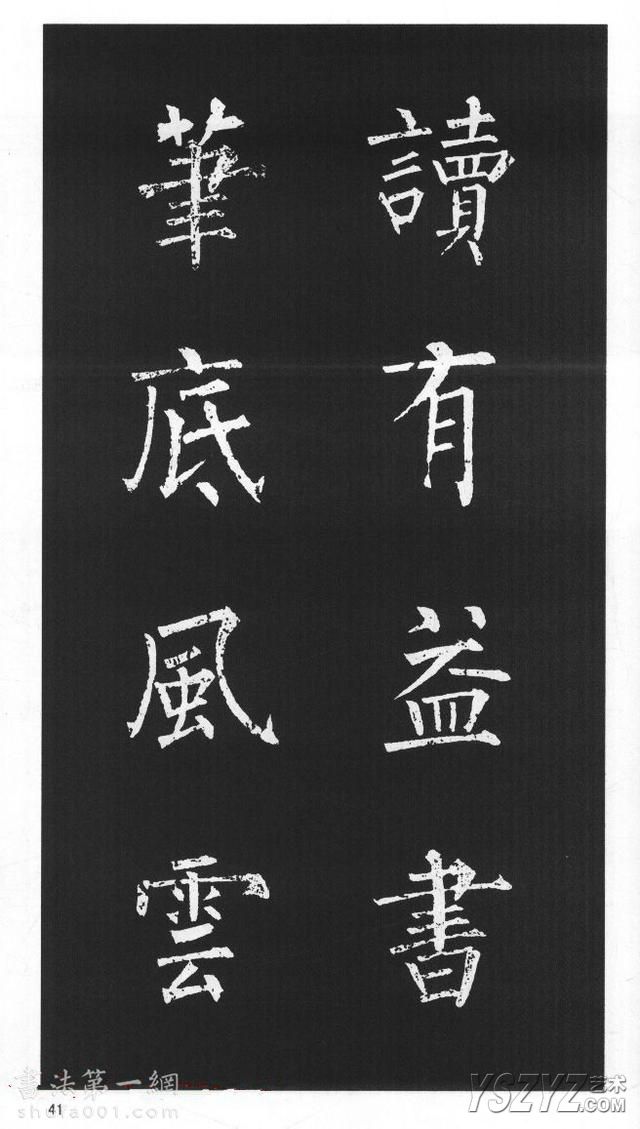 讀有益書
筆底風雲
書法第一網
shufa001.com
YSZYZ艺术
.COM
41